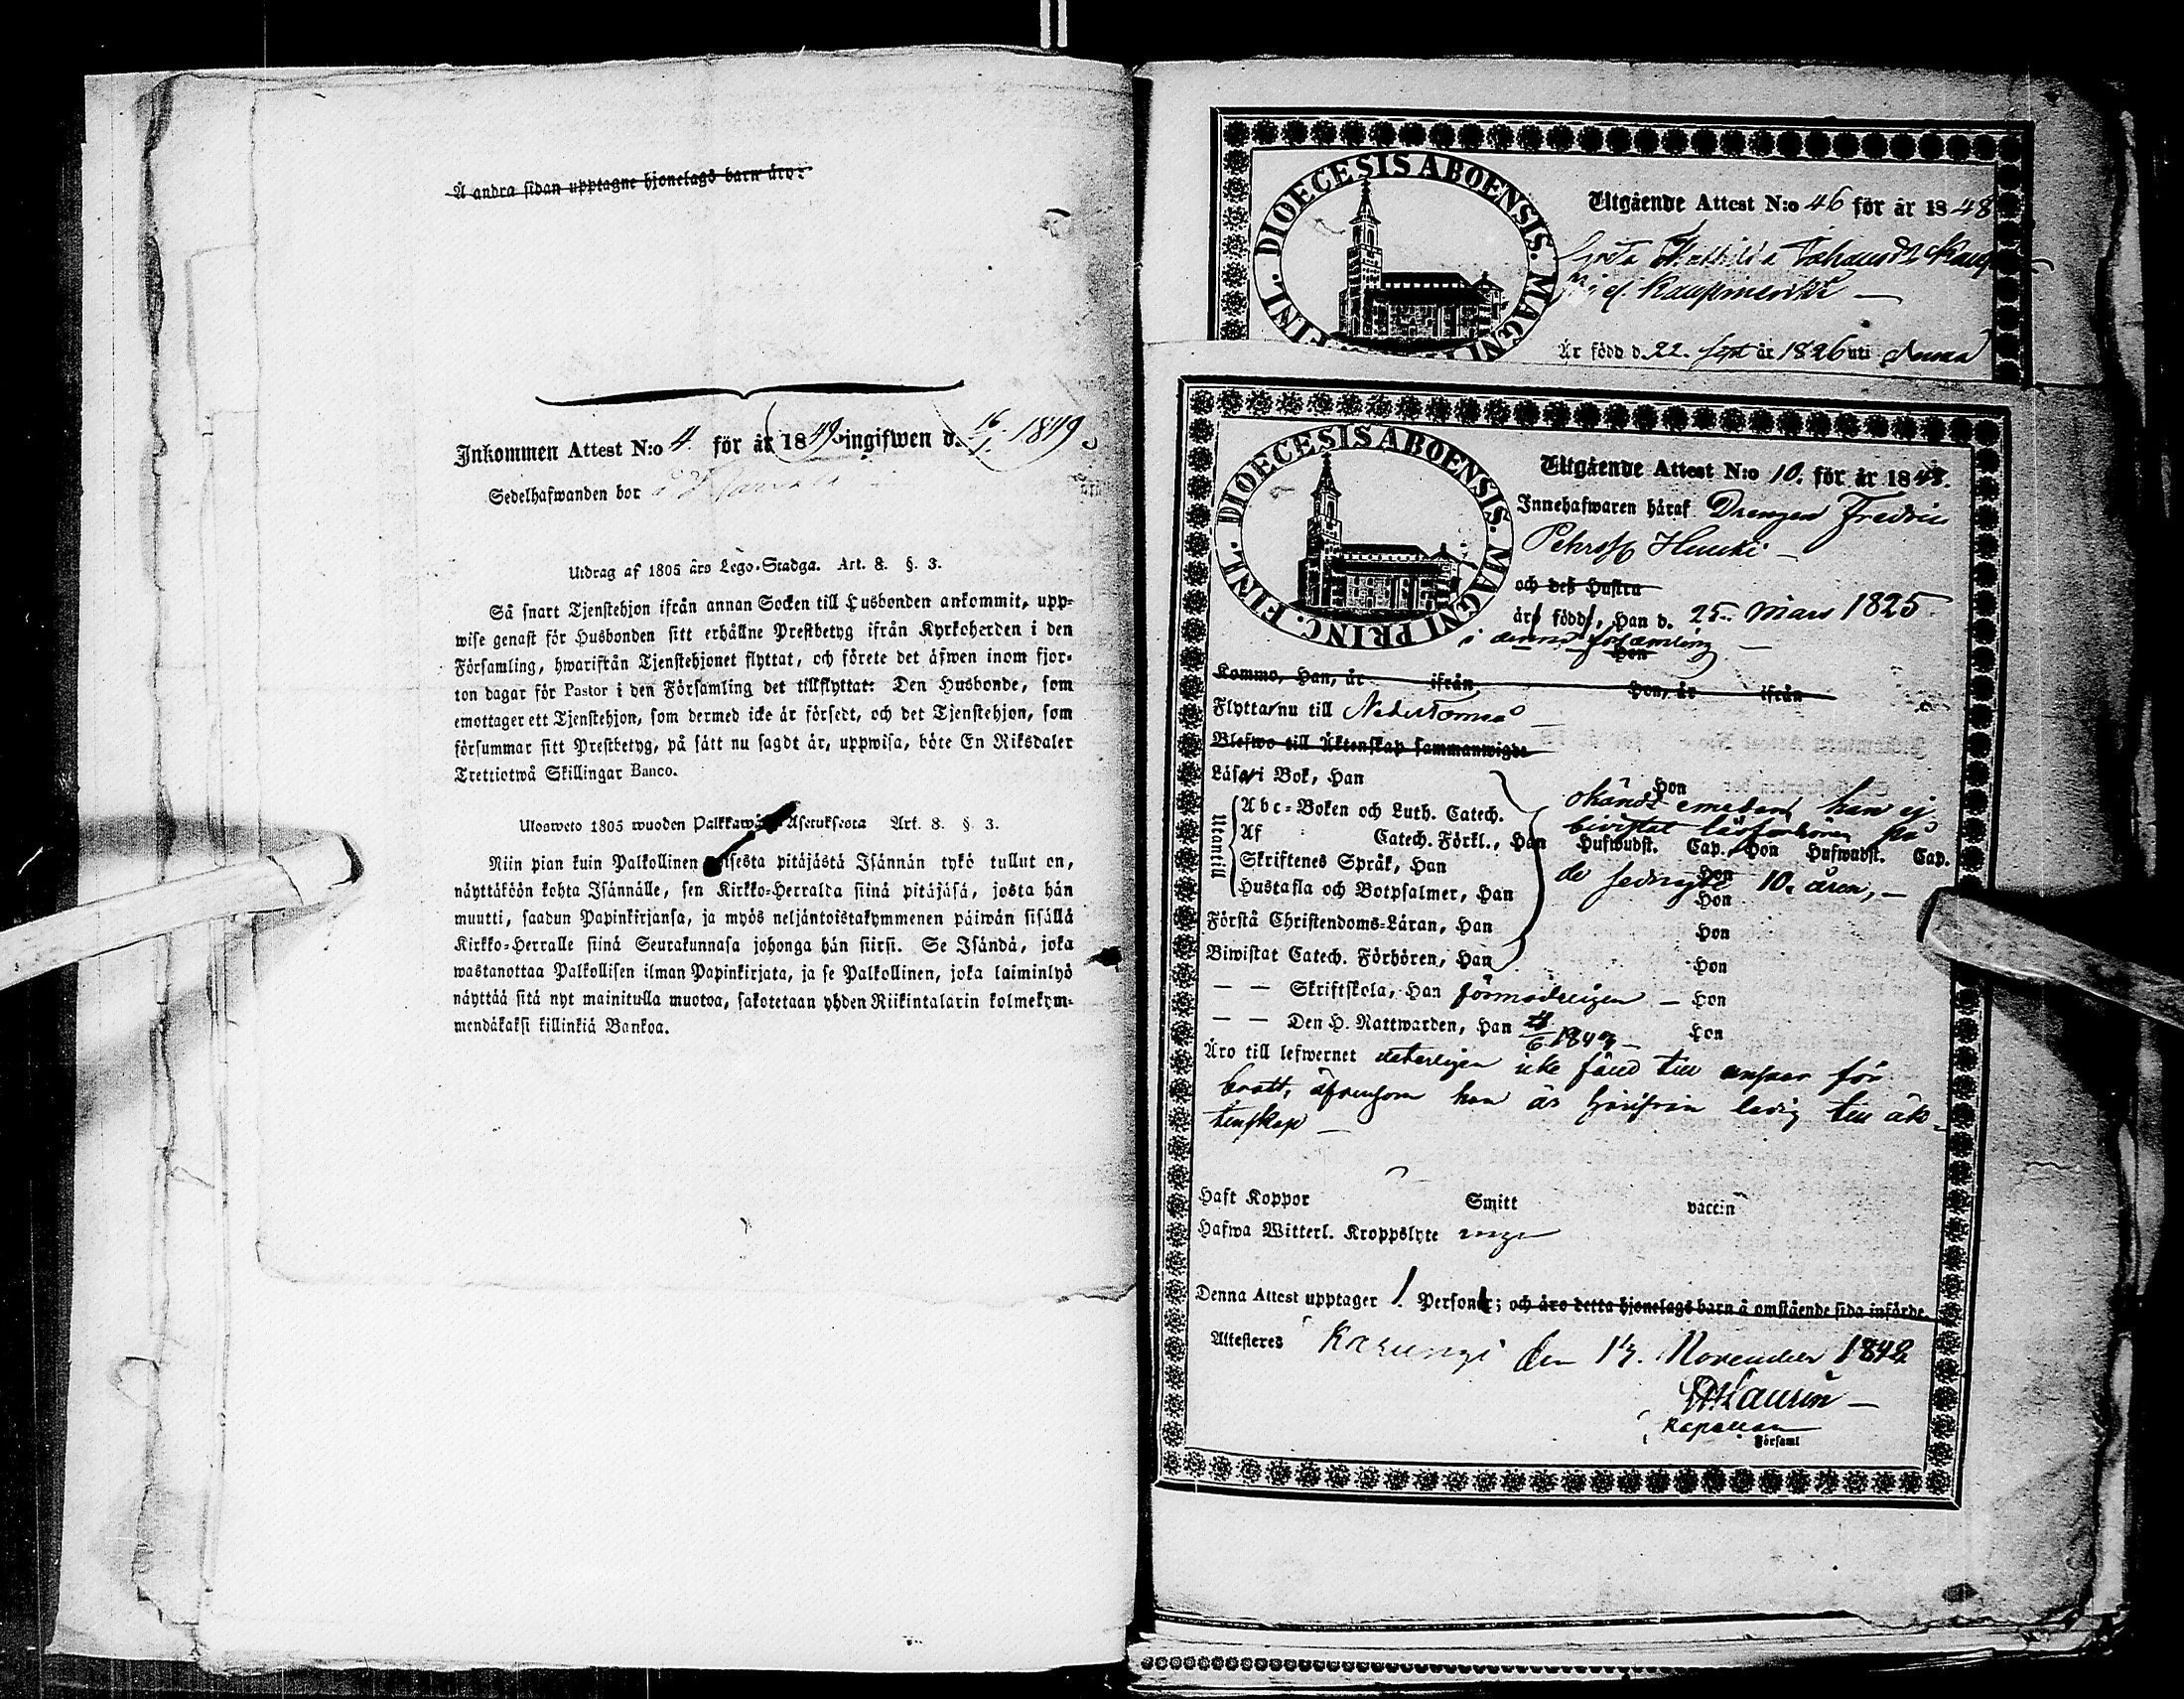 Å andra sidan upptagne hjonelags barn äro:
Inkommen Attest N:o 4. för år 1849 ingifwen d. 16/1. 1849
Sedelhafwanden bor i
Utdrag af 1805 års Lego-Stadga. Art. 8. §. 3.
Så snart Tjenstehjon ifrån annan Socken till Husbonden ankommit, upp-
wise genast för Husbonden sitt erhållne Prestbetyg ifrån Kyrkoherden i den
Församling, hwarifrån Tjenstehjonet flyttat, och förete det äfwen inom fjor-
ton dagar för Pastor i den Församling det tillflyttat: Den Husbonde, som
emottager ett Tjenstehjon, som dermed icke är försedt, och det Tjenstehjon, som
försummar sitt Prestbetyg, på sätt nu sagdt är, uppwisa, böte En Riksdaler
Trettiotwå Skillingar Banco.
Ulosweto 1805 wuoden Palkkawäen Asetuksesta Art. 8. §. 3.
Niin pian kuin Palkollinen toisesta pitäjästä Isännän tykö tullut on,
näyttäköön kohta Isännälle, sen Kirkko-Herralda siinä pitäjäsä, josta hän
muutti, saadun Papinkirjansa, ja myös neljäntoistakymmenen päiwän sisällä
Kirkko-Herralle siinä Seurakunnasa johonga hän siirsi. Se Isändä, joka
wastanottaa Palkollisen ilman Papinkirjata, ja se Palkollinen, joka laiminlyö
näyttää sitä nyt mainitulla muotoa, sakotetaan yhden Riikintalarin kolmekym-
mendäkaksi killinkiä Bankoa.
DIOECESIS ABOENSIS. MAGNI FINL.
Utgående Attest N:o 46 för år 1848
Greta Mathilda Johansdr
Är född d. 22. Sept år 1826 uti
DIOECESIS ABOENSIS. MAGNI PRINC. FINL.
Utgående Attest N:o 10. för år 1848.
Innehafwaren häraf Drengen Fredric
Pehrss
och deß Hustru
äro födde, Han d. 25. Mars 1825.
i denna församling
Hon
Kommo, Han, år ifrån Hon, år ifrån
Flytta nu till Nedertorneå
Blefwo till Äktenskap sammanwigde
Läsa i Bok, Han Hon
Utantill
Abc-Boken och Luth. Catech. okändt emedan han ej
bivistat läsförhören på
Af Catech. Förkl., Han Hufwudst. Cap., Hon Hufwudst. Cap.
Skriftenes Språk, Han Hon
de sednaste 10. åren,
Hustafla och Botpsalmer, Han Hon
Förstå Christendoms-Läran, Han Hon
Biwistat Catech. Förhören, Han Hon
— — Skriftskola, Han förmodeligen — Hon
— — Den H. Nattwarden, Han Hon
Äro till lefwernet veterligen icke fäld till ansvar för
brott, äfvensom han är härifrån ledig till äk-
tenskap —
Haft Koppor Smitt vaccin
Hafwa Witterl. Kroppslyte inga
Denna Attest upptager 1. Personer; och äro detta hjonelags barn å omstående sida införde.
Attesteres Karungi den 13. November 1848
Kapellan
i Församl